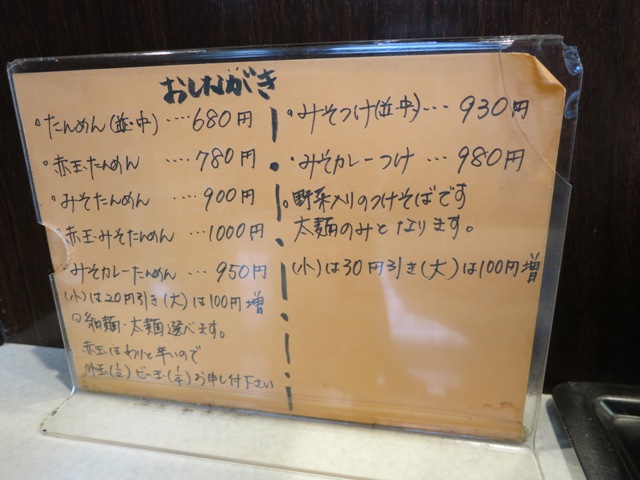 おしながき
。たんめん(並・中) ‥‥680円
。赤玉たんめん ‥‥780円
。みそたんめん ‥‥900円
。赤玉みそたんめん ‥‥1000円
みそカレーたんめん ‥‥950円
(小)は20円引き(大)は100円増
○細麺・太麺選べます。
赤玉はわりと辛いので
小玉(1/2)ビー玉(1/4)お申し付下さい
。みそつけ(並・中)‥‥930円
・みそカレーつけ ‥‥980円
○野菜入りのつけそばです
太麺のみとなります。
(小)は30円引き(大)は100円増